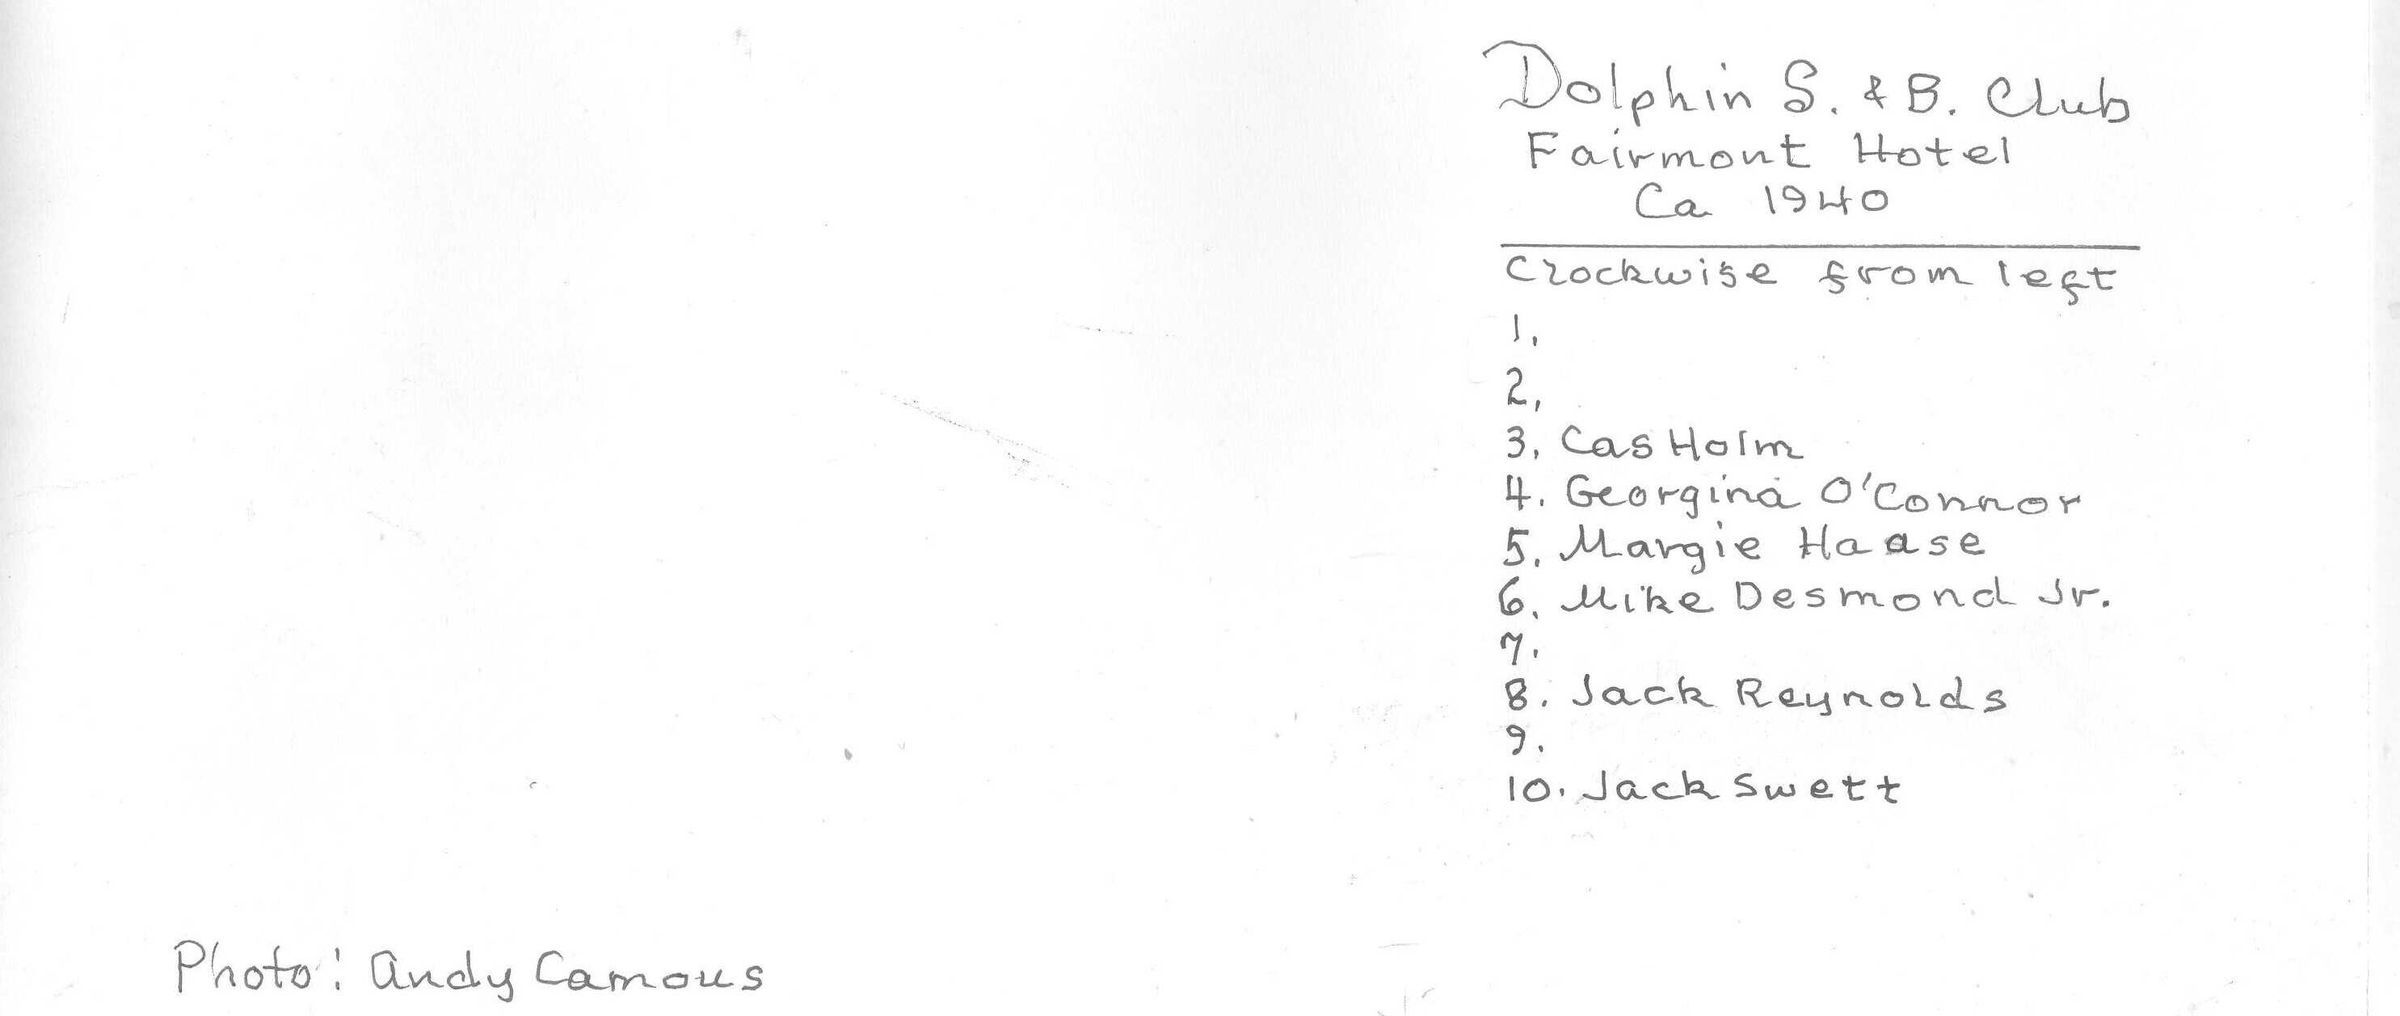 Dolphin S. & B. Club
Fairmont Hotel
Ca 1940
Clockwise from left
1.
2,
3. Cas Holm
4. Georgina O'Connor
5. Margie Haase
6. Mike Desmond Jr.
7.
8. Jack Reynolds
9.
10. Jack Swett
Photo: Andy Camous